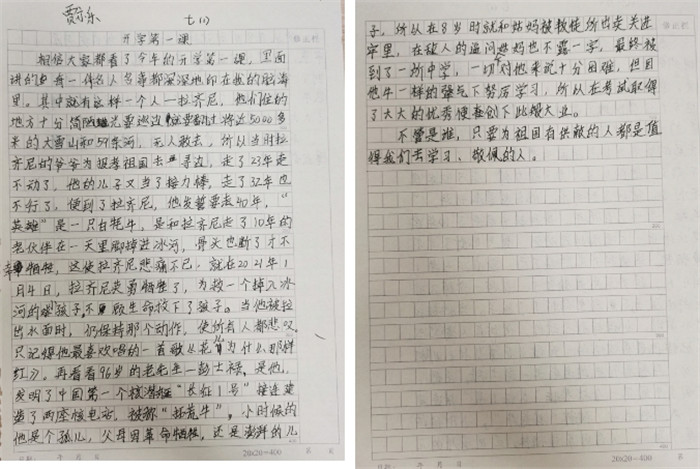 贾乐 七(1)
开学第一课
相信大家都看了今年的开学第一课,里面
讲的每一件每个人名章都深深地印在我的脑海
里。其中就有这样一个人—拉齐尼,他们住的
地方十分简陋 要巡边 就要翻过将近5000多
米的大雪山和59条河,无人敢去,所以当时拉
齐尼的爷爷为报孝祖国去寻边,走了23年走
不动了,他的儿子又当了接力棒,走了32年也
不行了,便到了拉齐尼,他发誓要走40年,“
英雄”是一只白牦牛,是和拉齐尼走了10年的
老伙伴在一天里脚掉进冰河,骨头也断了才不
幸牺牲,这使拉齐尼悲痛不已,就在2021年1
月4日,拉齐尼英勇牺牲了,为救一个掉入冰
河的孩子,不顾生命救下了孩子。当他被拉
出水面时,仍保持那个动作,使所有人都悲叹
只记得他最喜欢唱的一首歌《花儿为什么那样
红》。再看看96岁的老先生—彭士禄,是他,
发明了中国第一个核潜艇“长征1号”接连建
造了两座核电站,被称“拓荒牛”,小时候的
他是个孤儿,父母因革命牺牲,还是澎湃的儿
子,所以在8岁时就和姑妈被叛徒所出卖关进
牢里,在敌人的逼问姑妈也不露一字,最终被
到了一所中学,一切对他来说十分困难,但因
他牛一样的 下努力学习,所以在考试取得
了大大的优秀便喜创下此艰大业。
不管是谁,只要为祖国有供献的人都是值
得我们去学习、敬佩的人。
20x20=400
20x20=400